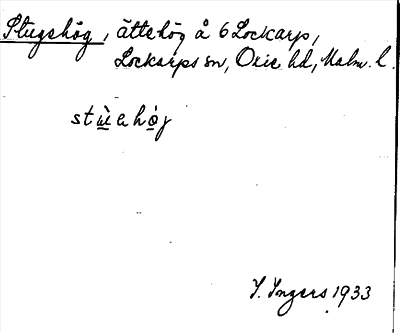 Stugshög, ättehög å 6 Lockarp,
Lockarps sn, Oxie hd, Malm. l.
stùehøj
I. Ingers 1933